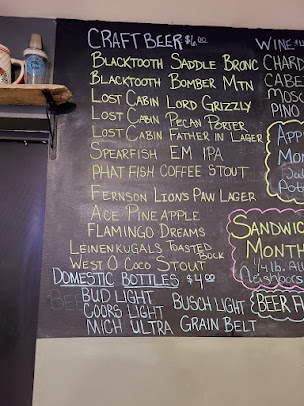 CRAFT BEER $6.00
BLACKTOOTH SADDLE BRONC
BLACKTOOTH BOMBER MTN
LOST CABIN LORD GRIZZLY
LOST CABIN PECAN PORTER
LOST CABIN FATHER IN LAGER
SPEARFISH EM IPA
PHAT FISH COFFEE STOUT
FERNSON LION'S PAW LAGER
ACE PINEAPPLE
FLAMINGO DREAMS
LEINENKUGALS TOASTED BOCK
WEST O COCO STOUT
DOMESTIC BOTTLES $4.00
BUD LIGHT BUSCH LIGHT
COORS LIGHT
MICH ULTRA GRAIN BELT
WINE
CHARD
CABE
MOSC
PINO
APP
MO
SANDWIC
MONTH
1/4 lb. All
Neighbors
BEER